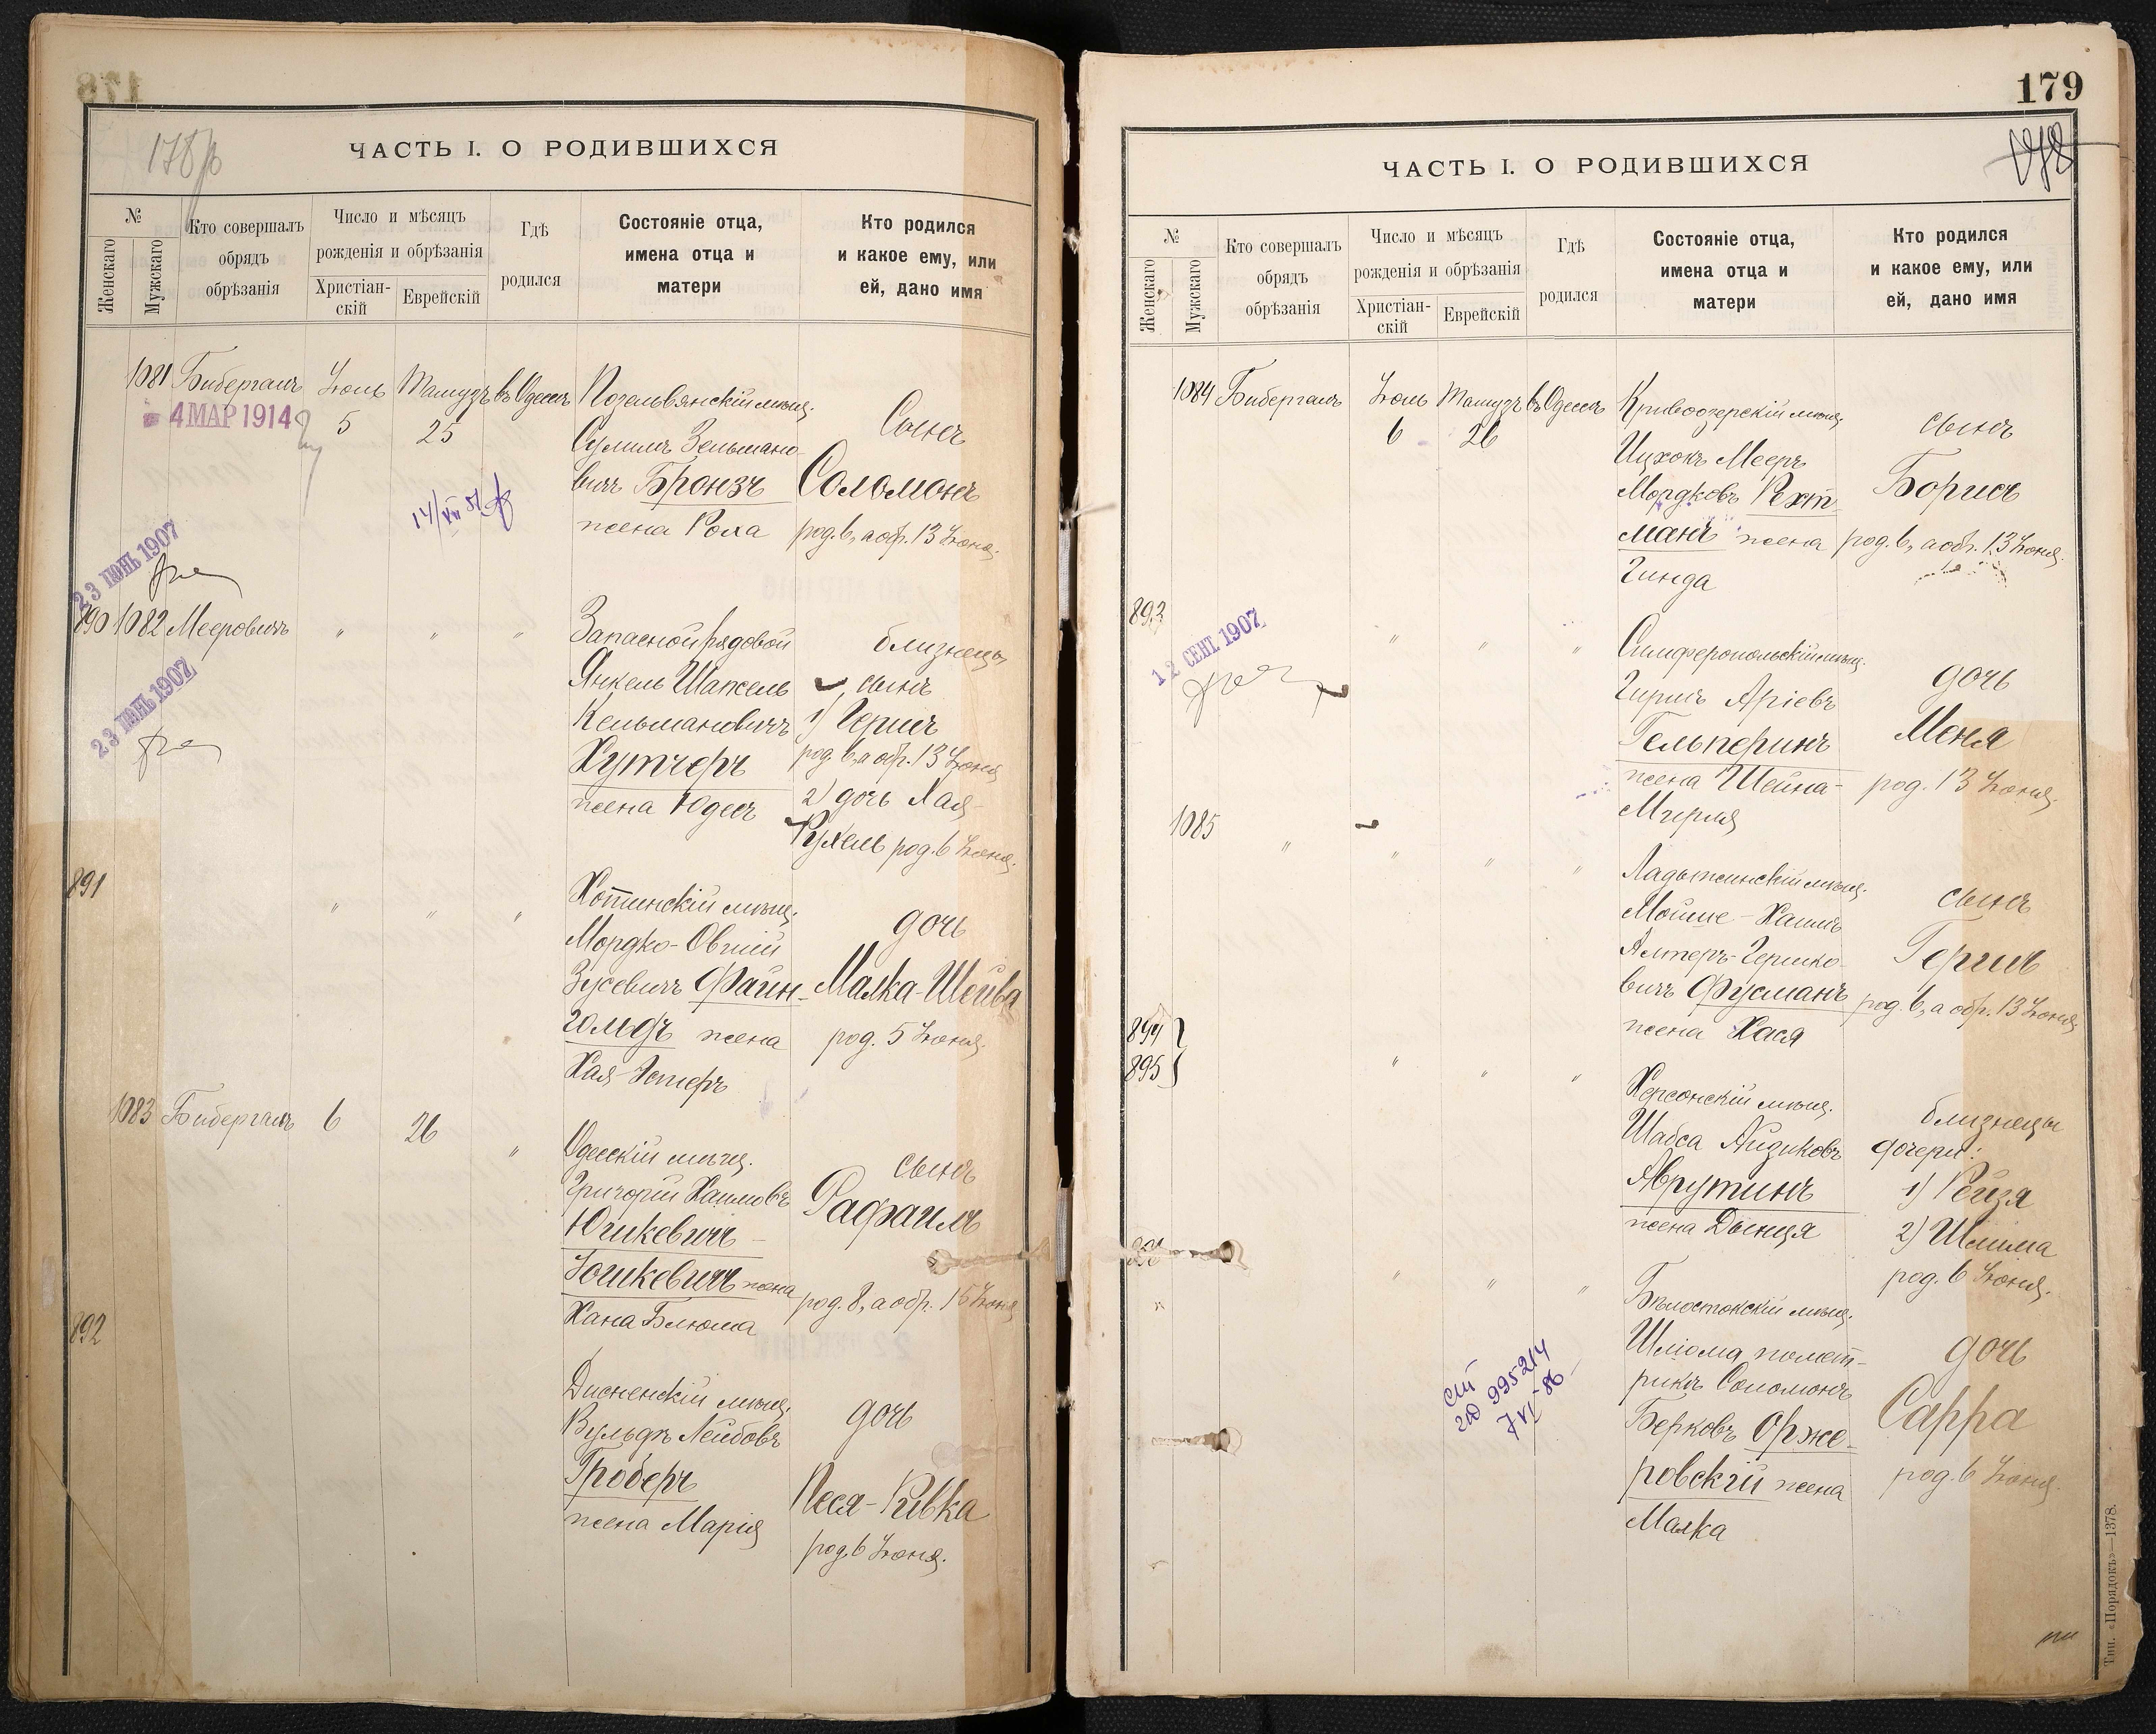 178
ЧАСТЬ I. О РОДИВШИХСЯ
№
Женскаго
Мужскаго
Кто совершалъ
обрядъ
обрѣзанія
Число и мѣсяцъ
рожденія и обрѣзанія
Христіан-
скій
Еврейскій
Гдѣ
родился
Состояніе отца,
имена отца и
матери
Кто родился
и какое ему, или
ей, дано имя
1081 Бибергалъ Іюль Тамузъ въ Одессѣ
4 МАР 1914
5 25
Сулимъ Зельмано-
вичъ Бронзъ
жена Роха
Сынъ
Соломонъ
род. 6, а обр. 13 Іюня.
23 ІЮНЬ 1907
890 1082 Мееровичъ " " "
23 ІЮНЬ 1907
Запасной рядовой
Янкель Шапсель
Кельмановичъ
Хутчеръ
жена Юдесъ
близнецы
сынъ
1) Гершъ
род. 6, а обр. 13 Іюня
2) дочь Хая-
Рухель род. 6 Іюня.
891 " " "
Хотинскій мѣщ.
Мордко-Овшій
Зусевичъ Файн-
гольдъ жена
Хая-Эстеръ
дочь
Малка-Шейва
род. 5 Іюня.
1083 Бибергалъ 6 26 "
Одесскій мѣщ.
Григорій Хаимовъ
Юшкевичъ-
Іошкевичъ жена
Хана Блюма
сынъ
Рафаилъ
род. 8, а обр. 15 Іюня
892
Дисненскій мѣщ.
Вульфъ Лейбовъ
Гроберъ
жена Марія
дочь
Песя-Ривка
род. 6 Іюня.
179
178
ЧАСТЬ I. О РОДИВШИХСЯ
№
Женскаго
Мужскаго
Кто совершалъ
обрядъ
обрѣзанія
Число и мѣсяцъ
рожденія и обрѣзанія
Христіан-
скій
Еврейскій
Гдѣ
родился
Состояніе отца,
имена отца и
матери
Кто родился
и какое ему, или
ей, дано имя
1084 Бибергалъ Іюль Тамузъ въ Одессѣ
6 26
Кривоозерскій мѣщ.
Ицхокъ Мееръ
Мордковъ Рехт-
манъ жена
Гинда
сынъ
Борисъ
род. 6, а обр. 13 Іюня.
893 " " "
12 СЕНТ 1907
Симферопольскій мѣщ.
Гиршъ Аріевъ
Гельперинъ
жена Шейна-
Мирля
дочь
Меня
род. 13 Іюня.
1085 " " " "
Ладыжинскій мѣщ.
Мойше-Хаимъ
Алтеръ-Гершко-
вичъ Фусманъ
жена Хася
сынъ
Гершъ
род. 6, а обр. 13 Іюня
894
895 " " "
Херсонскій мѣщ.
Шабса Айзиковъ
Аврутинъ
жена Двинця
близнецы
дочери:
1) Рейзя
2) Шлима
род. 6 Іюня.
" " "
Бѣлостокскій мѣщ.
Шліома помет-
рикѣ Соломонъ
Берковъ Орже-
ровскій жена
Малка
дочь
Сарра
род. 6 Іюня
995214
Тип. «Порядокъ»—1378.